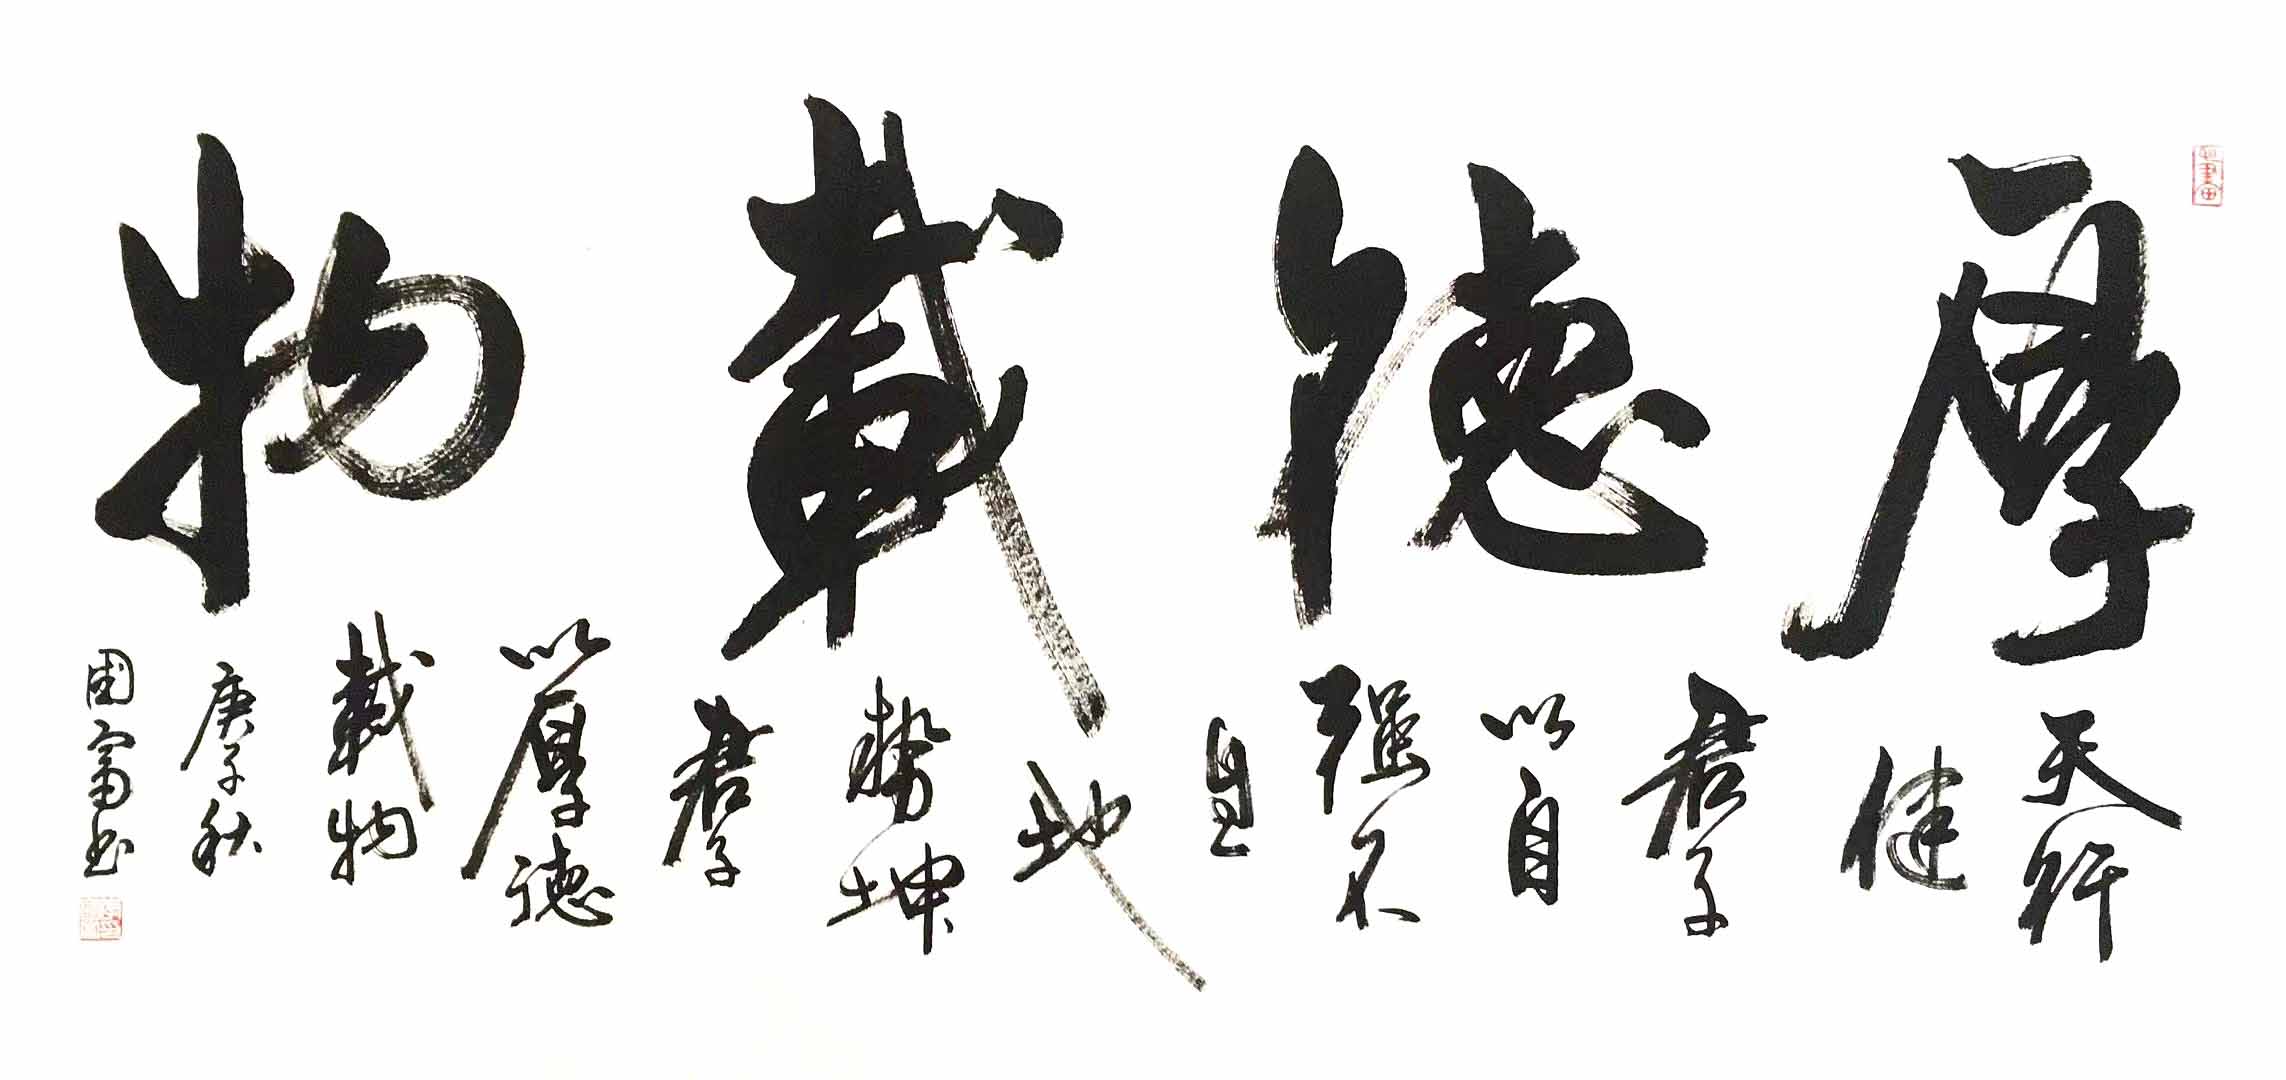 厚德載物
天行
健
君子
以自
强不
息
地
勢坤
君子
以厚德
載物
庚子秋
国富书